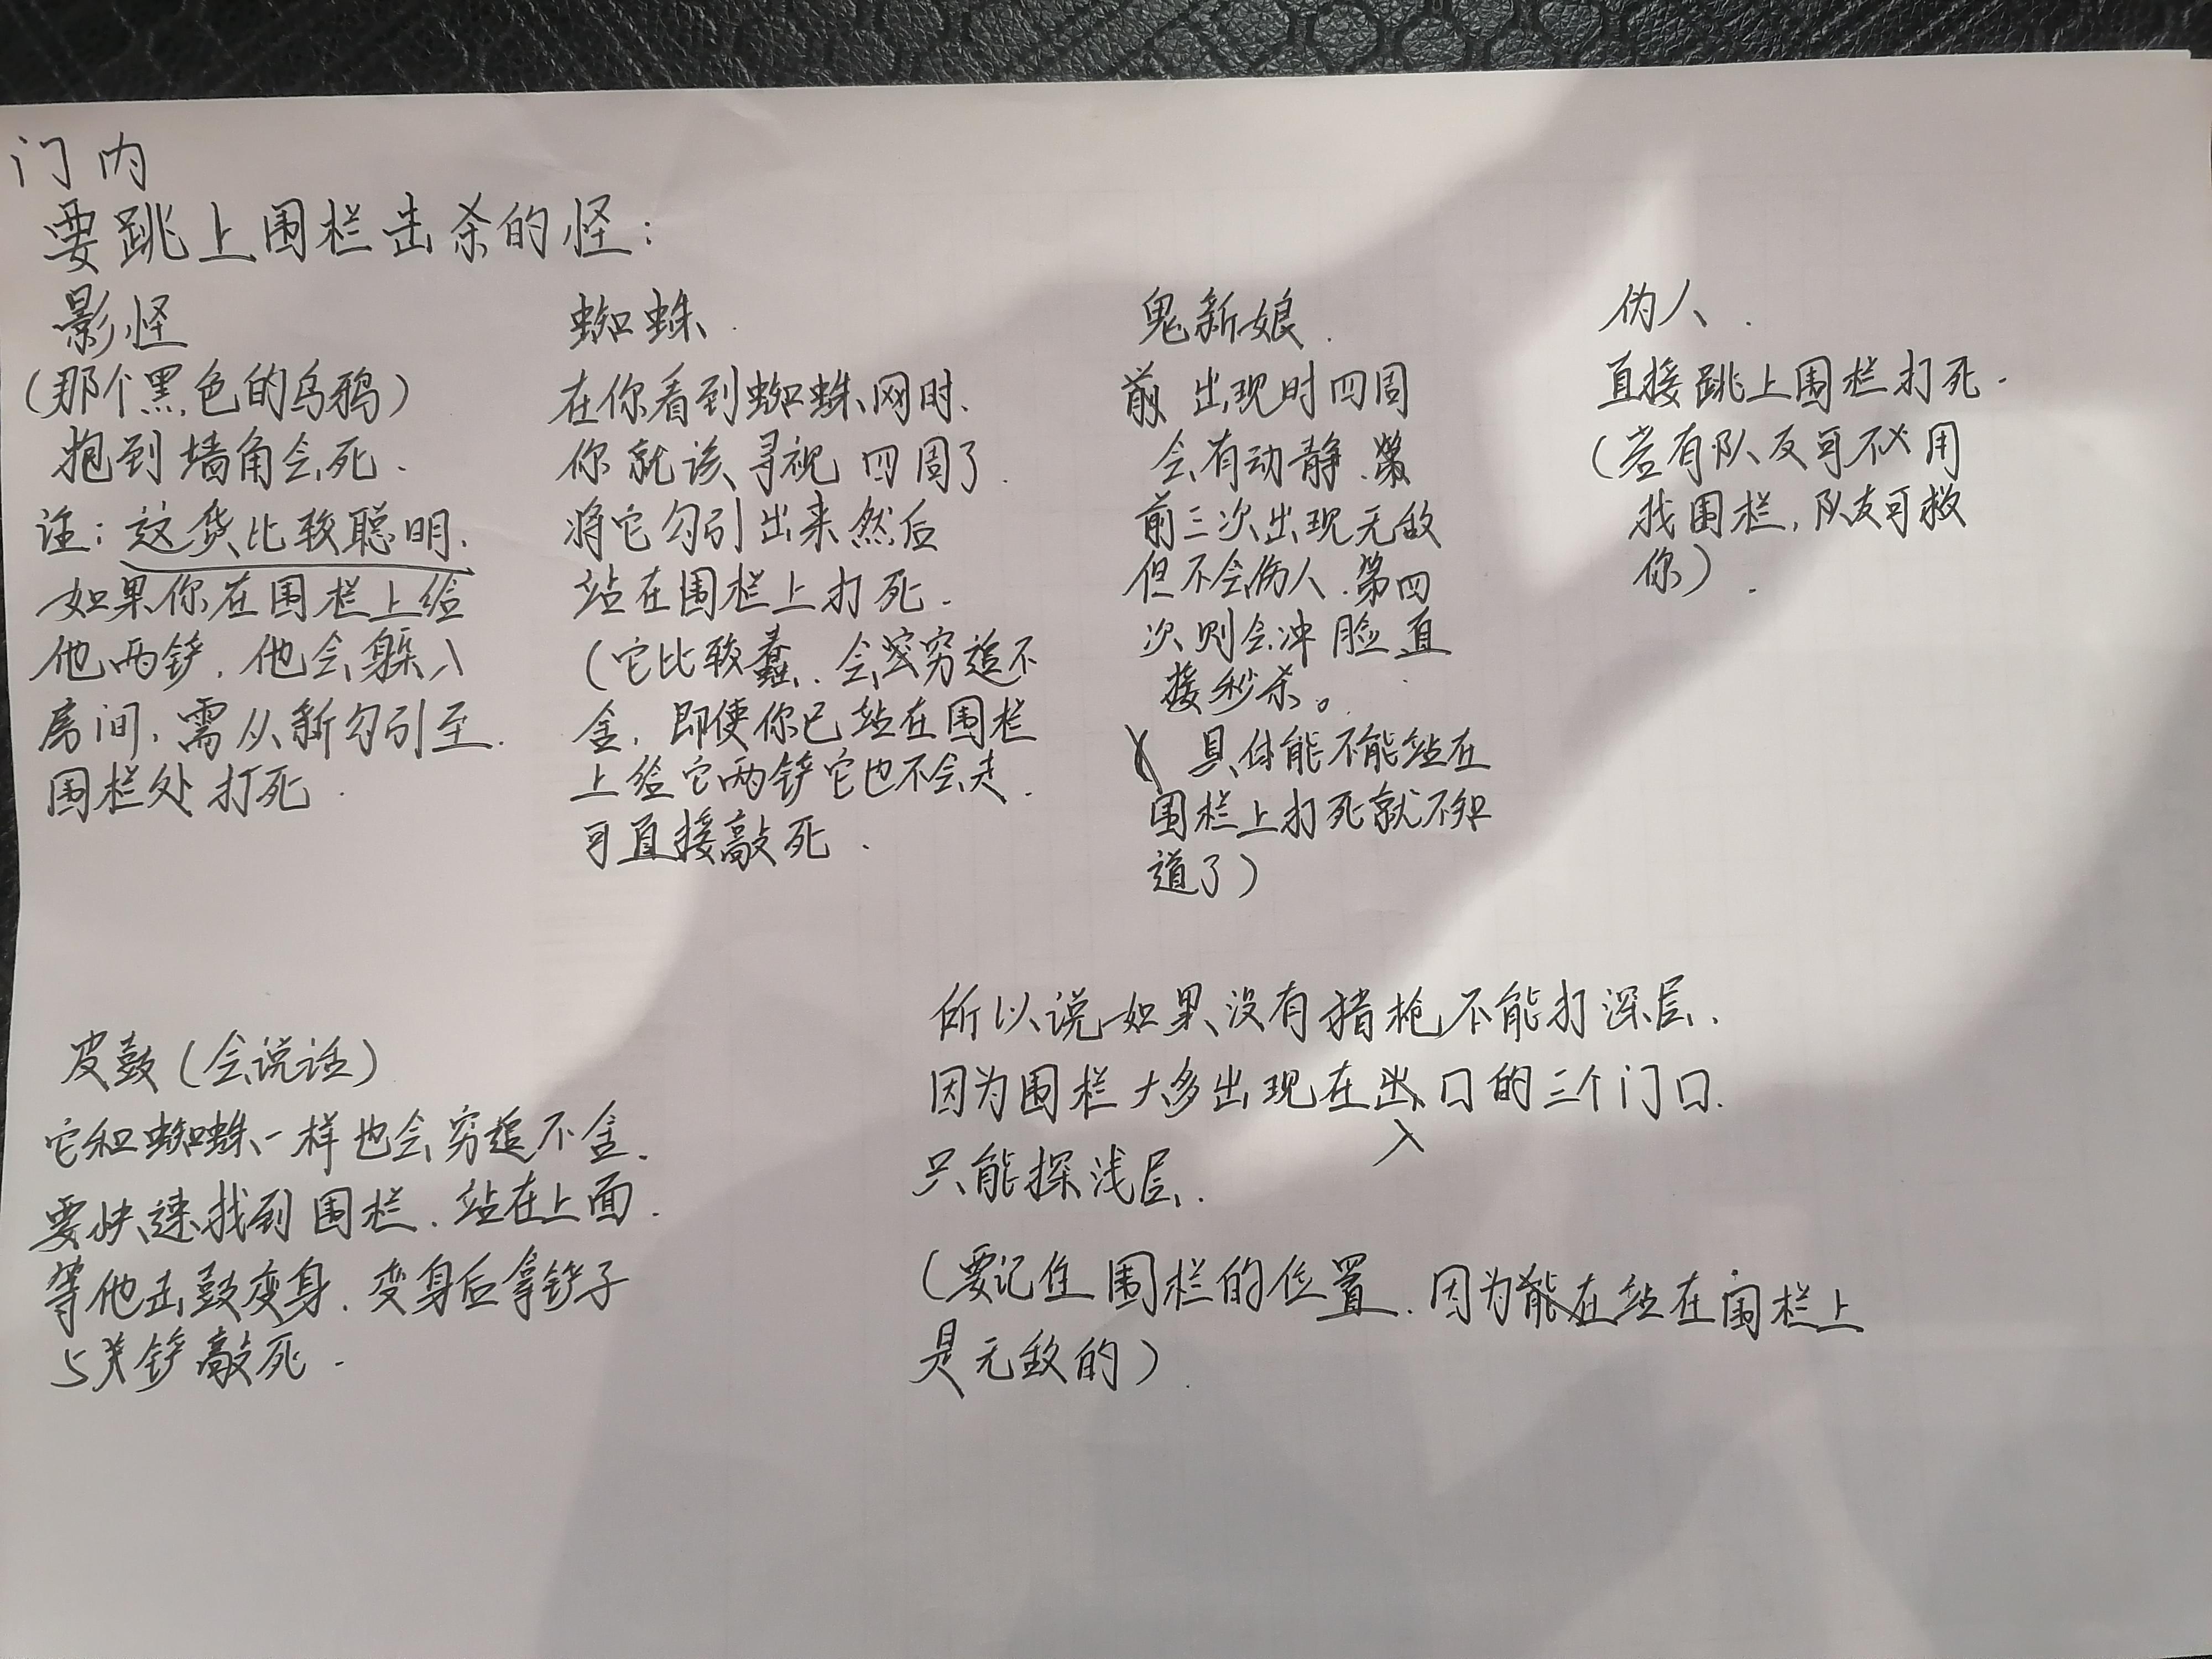 门内
要跳上围栏击杀的怪:
影怪
(那个黑色的乌鸦)
抱到墙角会死.
注:这货比较聪明.
如果你在围栏上给
他两铲,他会躲入
房间,需从新勾引至.
围栏处打死.
蜘蛛.
在你看到蜘蛛网时.
你就该寻视四周了.
将它勾引出来然后
站在围栏上打死.
(它比较蠢.会穷追不
舍,即使你已站在围栏
上给它两铲它也不会走.
可直接敲死.
鬼新娘.
出现时四周
会有动静.
前三次出现无敌
但不会伤人.第四
次则会冲脸直
接秒杀。
具体能不能站在
围栏上打死就不知
道了)
伪人.
直接跳上围栏打死.
(若有队友可不必用
找围栏,队友可救
你).
皮鼓(会说话)
它和蜘蛛一样也会穷追不舍.
要快速找到围栏.站在上面.
等他击鼓变身.变身后拿铲子
5铲敲死.
所以说如果没有猎枪不能打深层.
因为围栏大多出现在入口的三个门口.
只能探浅层.
(要记住围栏的位置.因为站在围栏上
是无敌的).